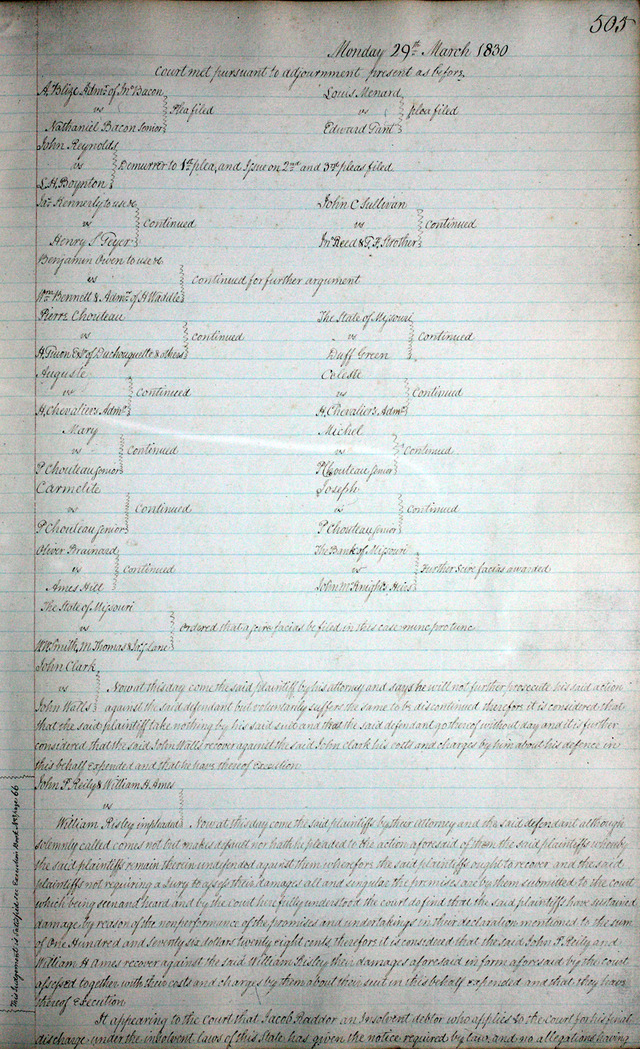 505
Monday 29th March 1830
Court met pursuant to adjournment present as before
A. Blize Admr. of Jno Bacon
vs
Nathaniel Bacon Senior
Plea filed
Louis Menard
vs
Edward
plea filed
John Reynolds
vs
L. H. Boynton
Demurrer to 1st plea, and Issue on 2nd and 3rd pleas filed
Kennerly to use &c
vs
Henry S Geyer
Continued
John C Sullivan
vs
Jno Reed & G. F. Strother
Continued
Benjamin Owen to use &c
vs
Wm Bennell & Admr. of H Waddle
Continued for further argument
Pierre Chouteau
vs
H. Guion of Duchouquette & others
Continued
The State of Missouri
vs
Duff Green
Continued
Auguste
vs
H. Chevaliers Admr.
Continued
Celeste
vs
H. Chevaliers Admr.
Continued
Mary
vs
P Chouteau Senior
Continued
Michel
vs
P Chouteau Senior
Continued
Carmelite
vs
P Chouteau Senior
Continued
Joseph
vs
P Chouteau Senior
Continued
Oliver Brainard
vs
Ames Hill
Continued
The Bank of Missouri
vs
John McKnights Heirs
Further Scire facias awarded
The State of Missouri
vs
W. Smith, M Thomas & Lane
Ordered that a scire facias be filed in this case nunc pro tunc
John Clark
vs
John Walls
Now at this day come the said plaintiff by his attorney and says he will not further prosecute his said action
against the said defendant but voluntarily suffers the same to be discontinued therefore it is considered that
that the said plaintiff take nothing by his said suit and that the said defendant go thereof without day and it is further
considered that the said John Walls recover against the said John Clark his costs and charges by him about his defence in
this behalf expended and that he have thereof execution
John F. Reily & William H. Ames
vs
William Risley impleaded Now at this day come the said plaintiffs by their Attorney and the said defendant although
solemnly called comes not but makes default nor hath he pleaded to the action aforesaid of them the said plaintiffs whereby
the said plaintiffs remain therein undefended against them wherefore the said plaintiffs ought to recover and the said
plaintiffs not requiring a Jury to assess their damages all and singular the premises are by them submitted to the court
which being seen and heard and by the court here fully understood the court do find that the said plaintiffs have sustained
damage by reason of the nonperformance of the promises and undertakings in their declaration mentioned to the sum
of One Hundred and seventy six dollars twenty eight cents, therefore it is considered that the said John F. Reily and
William H Ames recover against the said William Risley their damages aforesaid in form aforesaid by the court
assessed together with their costs and charges by them about their suit in this behalf expended and that they have
thereof Execution
It appearing to the Court that Jacob Baddor an Insolvent debtor who applies to the court for his final
discharge under the insolvent laws of this State has given the notice required by law, and no allegations having
This Judgement is satisfied see Execution Book page 66